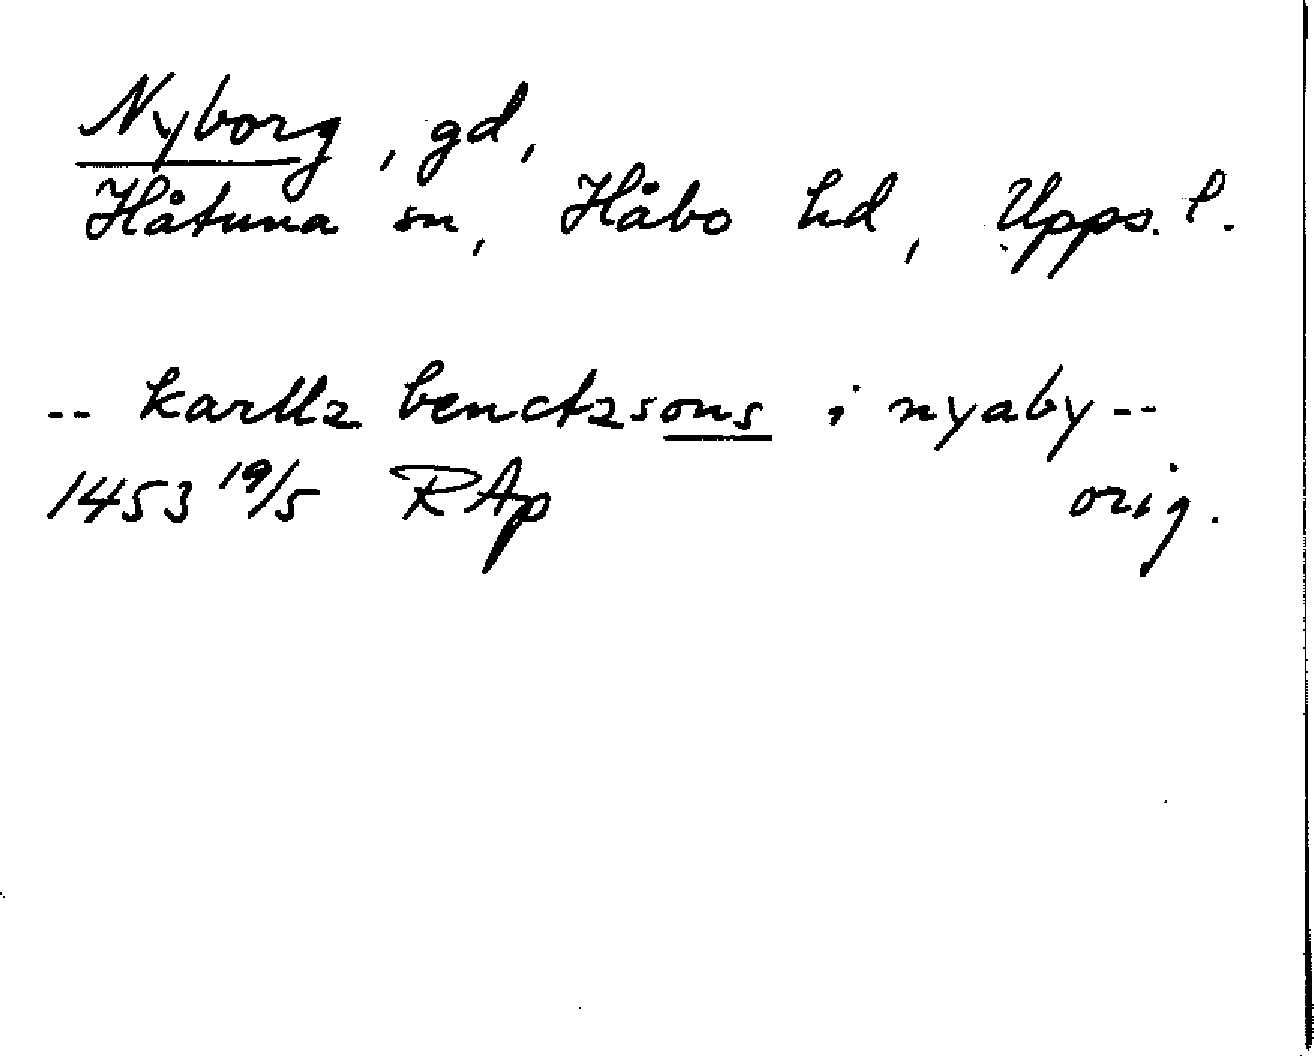 Nyborg, gd,
Håtuna sn, Håbo hd, Upps. l.
-- karllz benctzsons i nyaby --
1453 19/5 RAp orig.